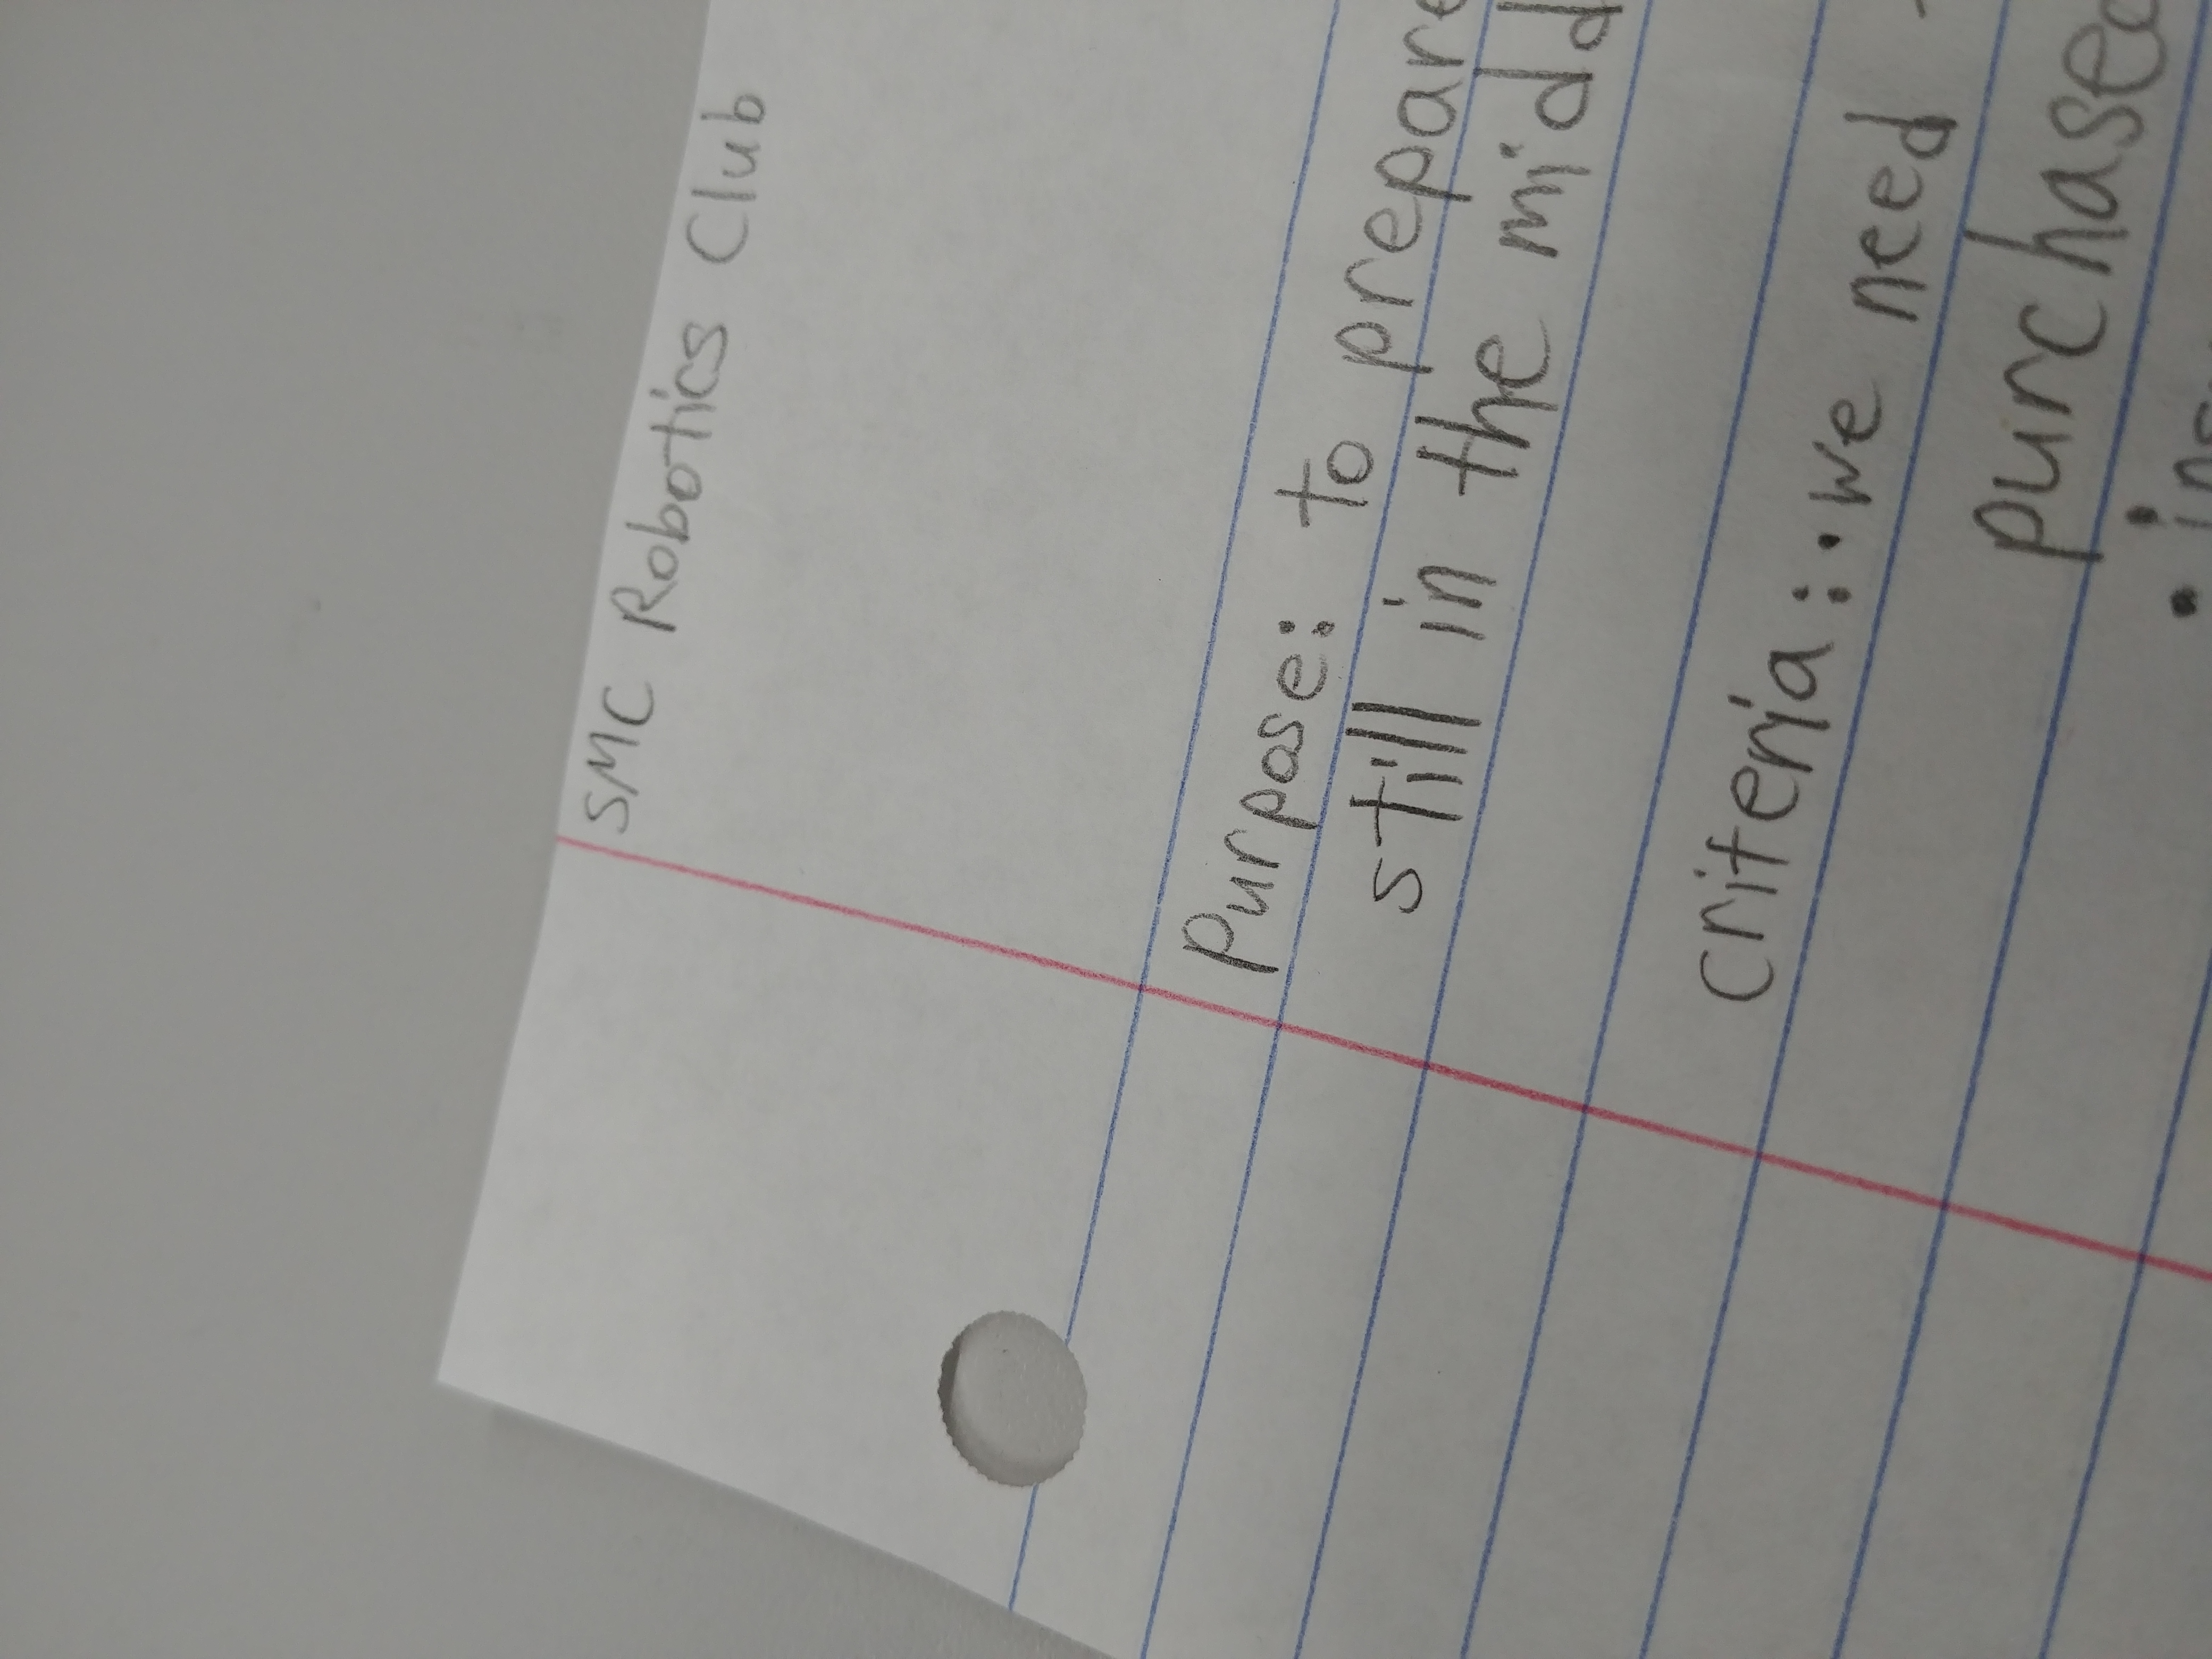 SMC Robotics Club
Purpose: to prepare
still in the midd
criteria: • we need
purchased
•